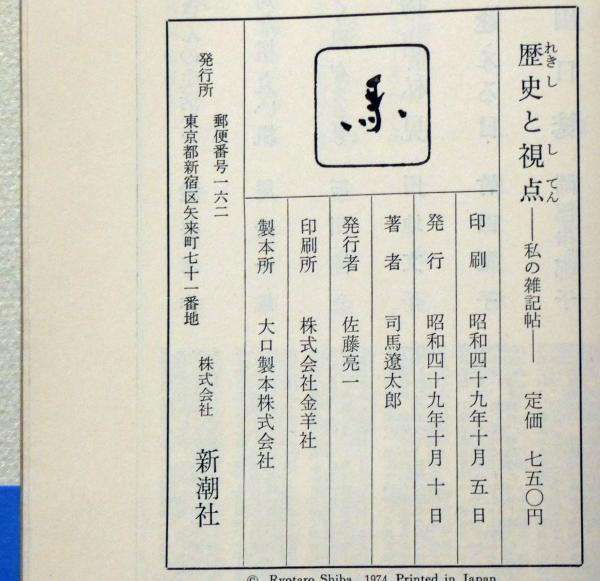 歴史と視点──私の雑記帖── 定価 七五〇円
れきし してん
印刷 昭和四十九年十月五日
発行 昭和四十九年十月十日
著者 司馬遼太郎
発行者 佐藤亮一
印刷所 株式会社金羊社
製本所 大口製本株式会社
郵便番号一六二
発行所 東京都新宿区矢来町七十一番地 株式会社 新潮社
© Ryotaro Shiba, 1974 Printed in Japan